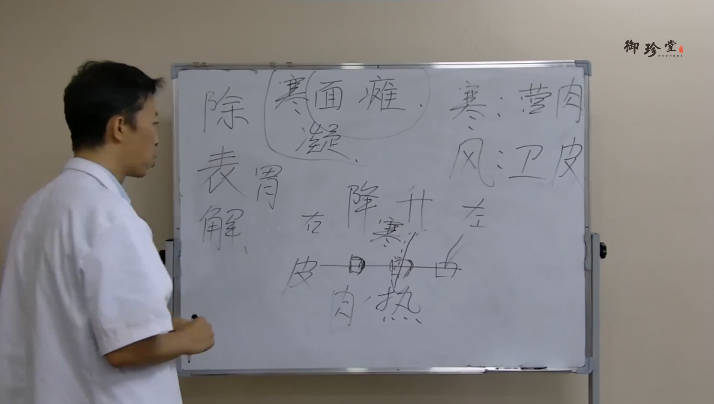 御珍堂
除表解
寒面瘫
凝
胃
寒：营肉
风：卫皮
降升
右 寒 左
皮
肉 热